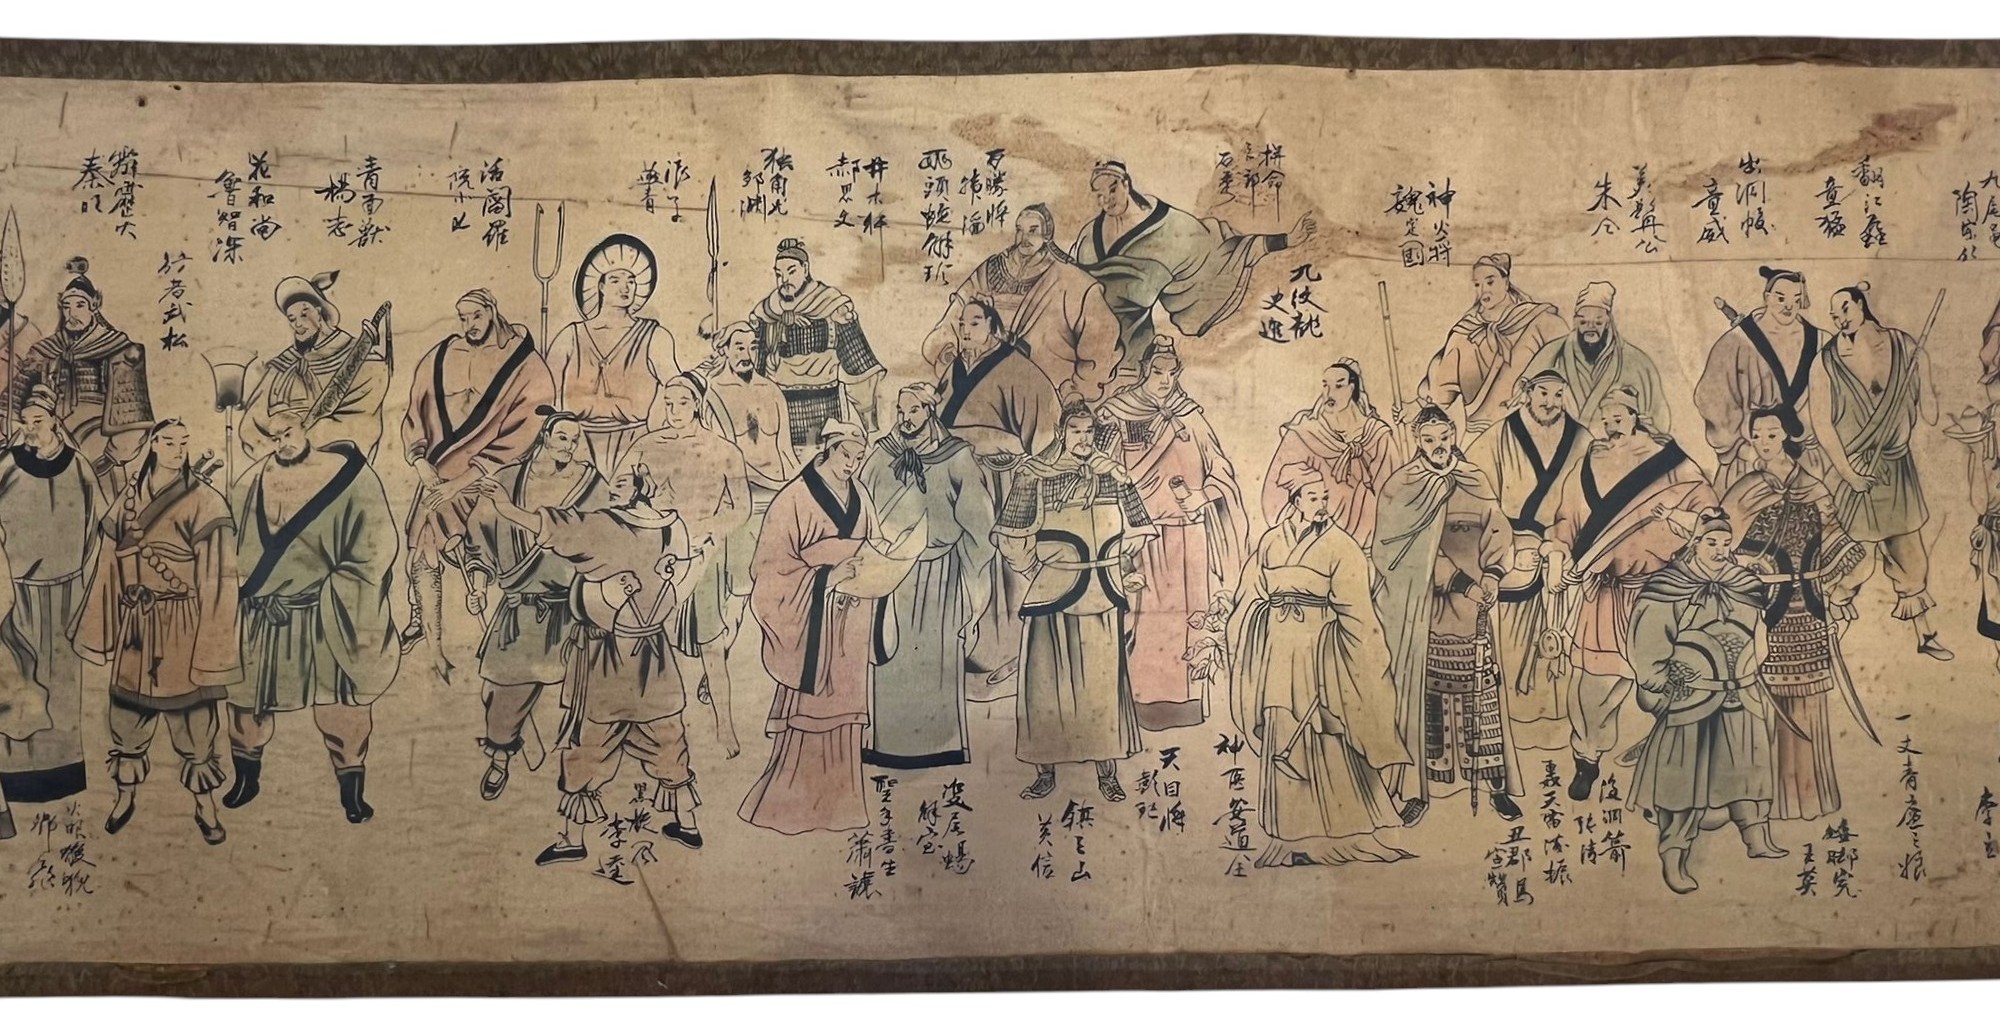 九尾龜
陶宗旺
翻江蜃
童猛
出洞蛟
童威
美髯公
朱仝
神火將
魏定國
拼命
三郎
石秀
九纹龍
史進
百勝將
韓滔
兩頭蛇解珍
井木犴
郝思文
独角龙
邹渊
浪子
燕青
活閻羅
阮小七
青面獸
楊志
花和尚
魯智深
行者武松
霹靂火
秦明
李立
一丈青扈三娘
矮脚虎
王英
没羽箭
張清
轟天雷凌振
丑郡馬
宣贊
神医安道全
天目將
彭玘
鎮三山
黄信
双尾蝎
解宝
聖手書生
蕭讓
黑旋风
李逵
火眼狻猊
鄧飛